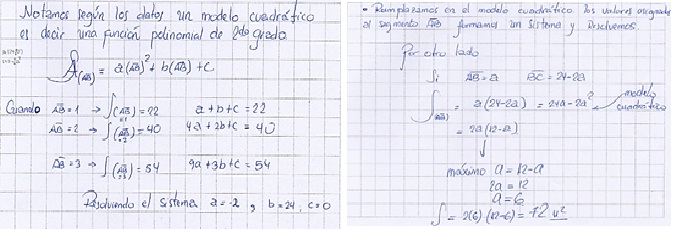 Notamos según los datos un modelo cuadrático
es decir una función polinomial de 2do grado.
∫(AB) = a(AB)² + b(AB) + c
Cuando AB = 1 → ∫(AB) = 22 a + b + c = 22
AB = 2 → ∫(AB) = 40 4a + 2b + c = 40
AB = 3 → ∫(AB) = 54 9a + 3b + c = 54
Resolviendo el sistema a = -2, b = 24, c = 0
• Reemplazamos en el modelo cuadrático los valores asignados
al segmento AB formamos un sistema y resolvemos.
Por otro lado
Si AB = a BC = 24-2a
∫(AB) = a(24-2a) = 24a-2a² modelo
cuadrático
= 2a(12-a)
máximo a = 12-a
2a = 12
a = 6
∫ = 2(6)(12-6) = 72